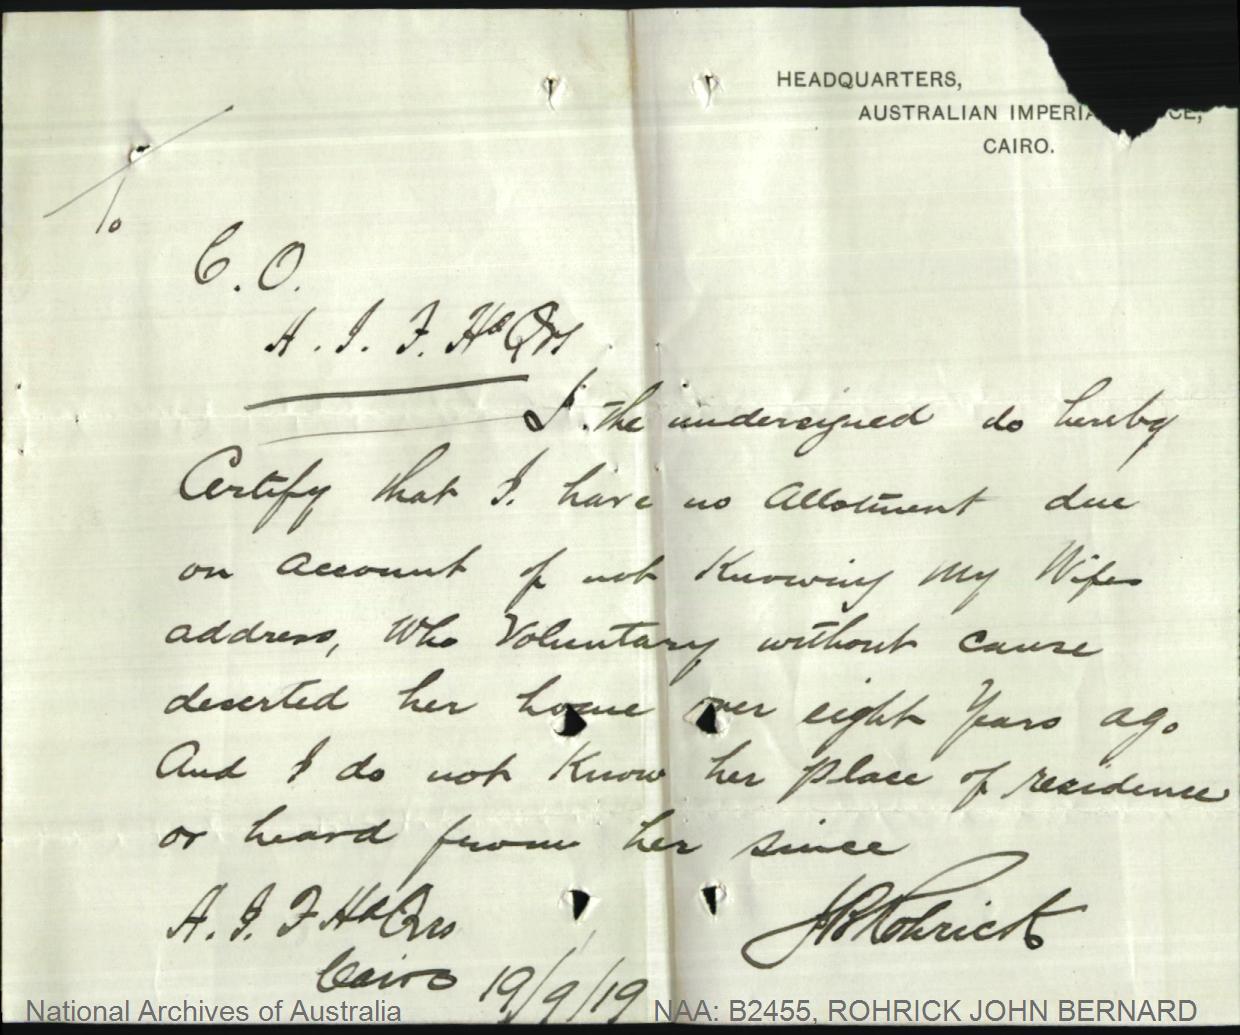 HEADQUARTERS,
AUSTRALIAN IMPERIA CE,
CAIRO.
To
C. O.
A. I. F. Hd Qrs
I. the undersigned do hereby
Certify that I. have no Allotment due
on account of not Knowing My Wifes
address, Who Voluntary without cause
deserted her home over eight Years ago
And I do not Know her place of residence
or heard from her since
A. I. F Hd Qrs
Cairo 19/9/19
JB Rohrick
National Archives of Australia
NAA: B2455, ROHRICK JOHN BERNARD